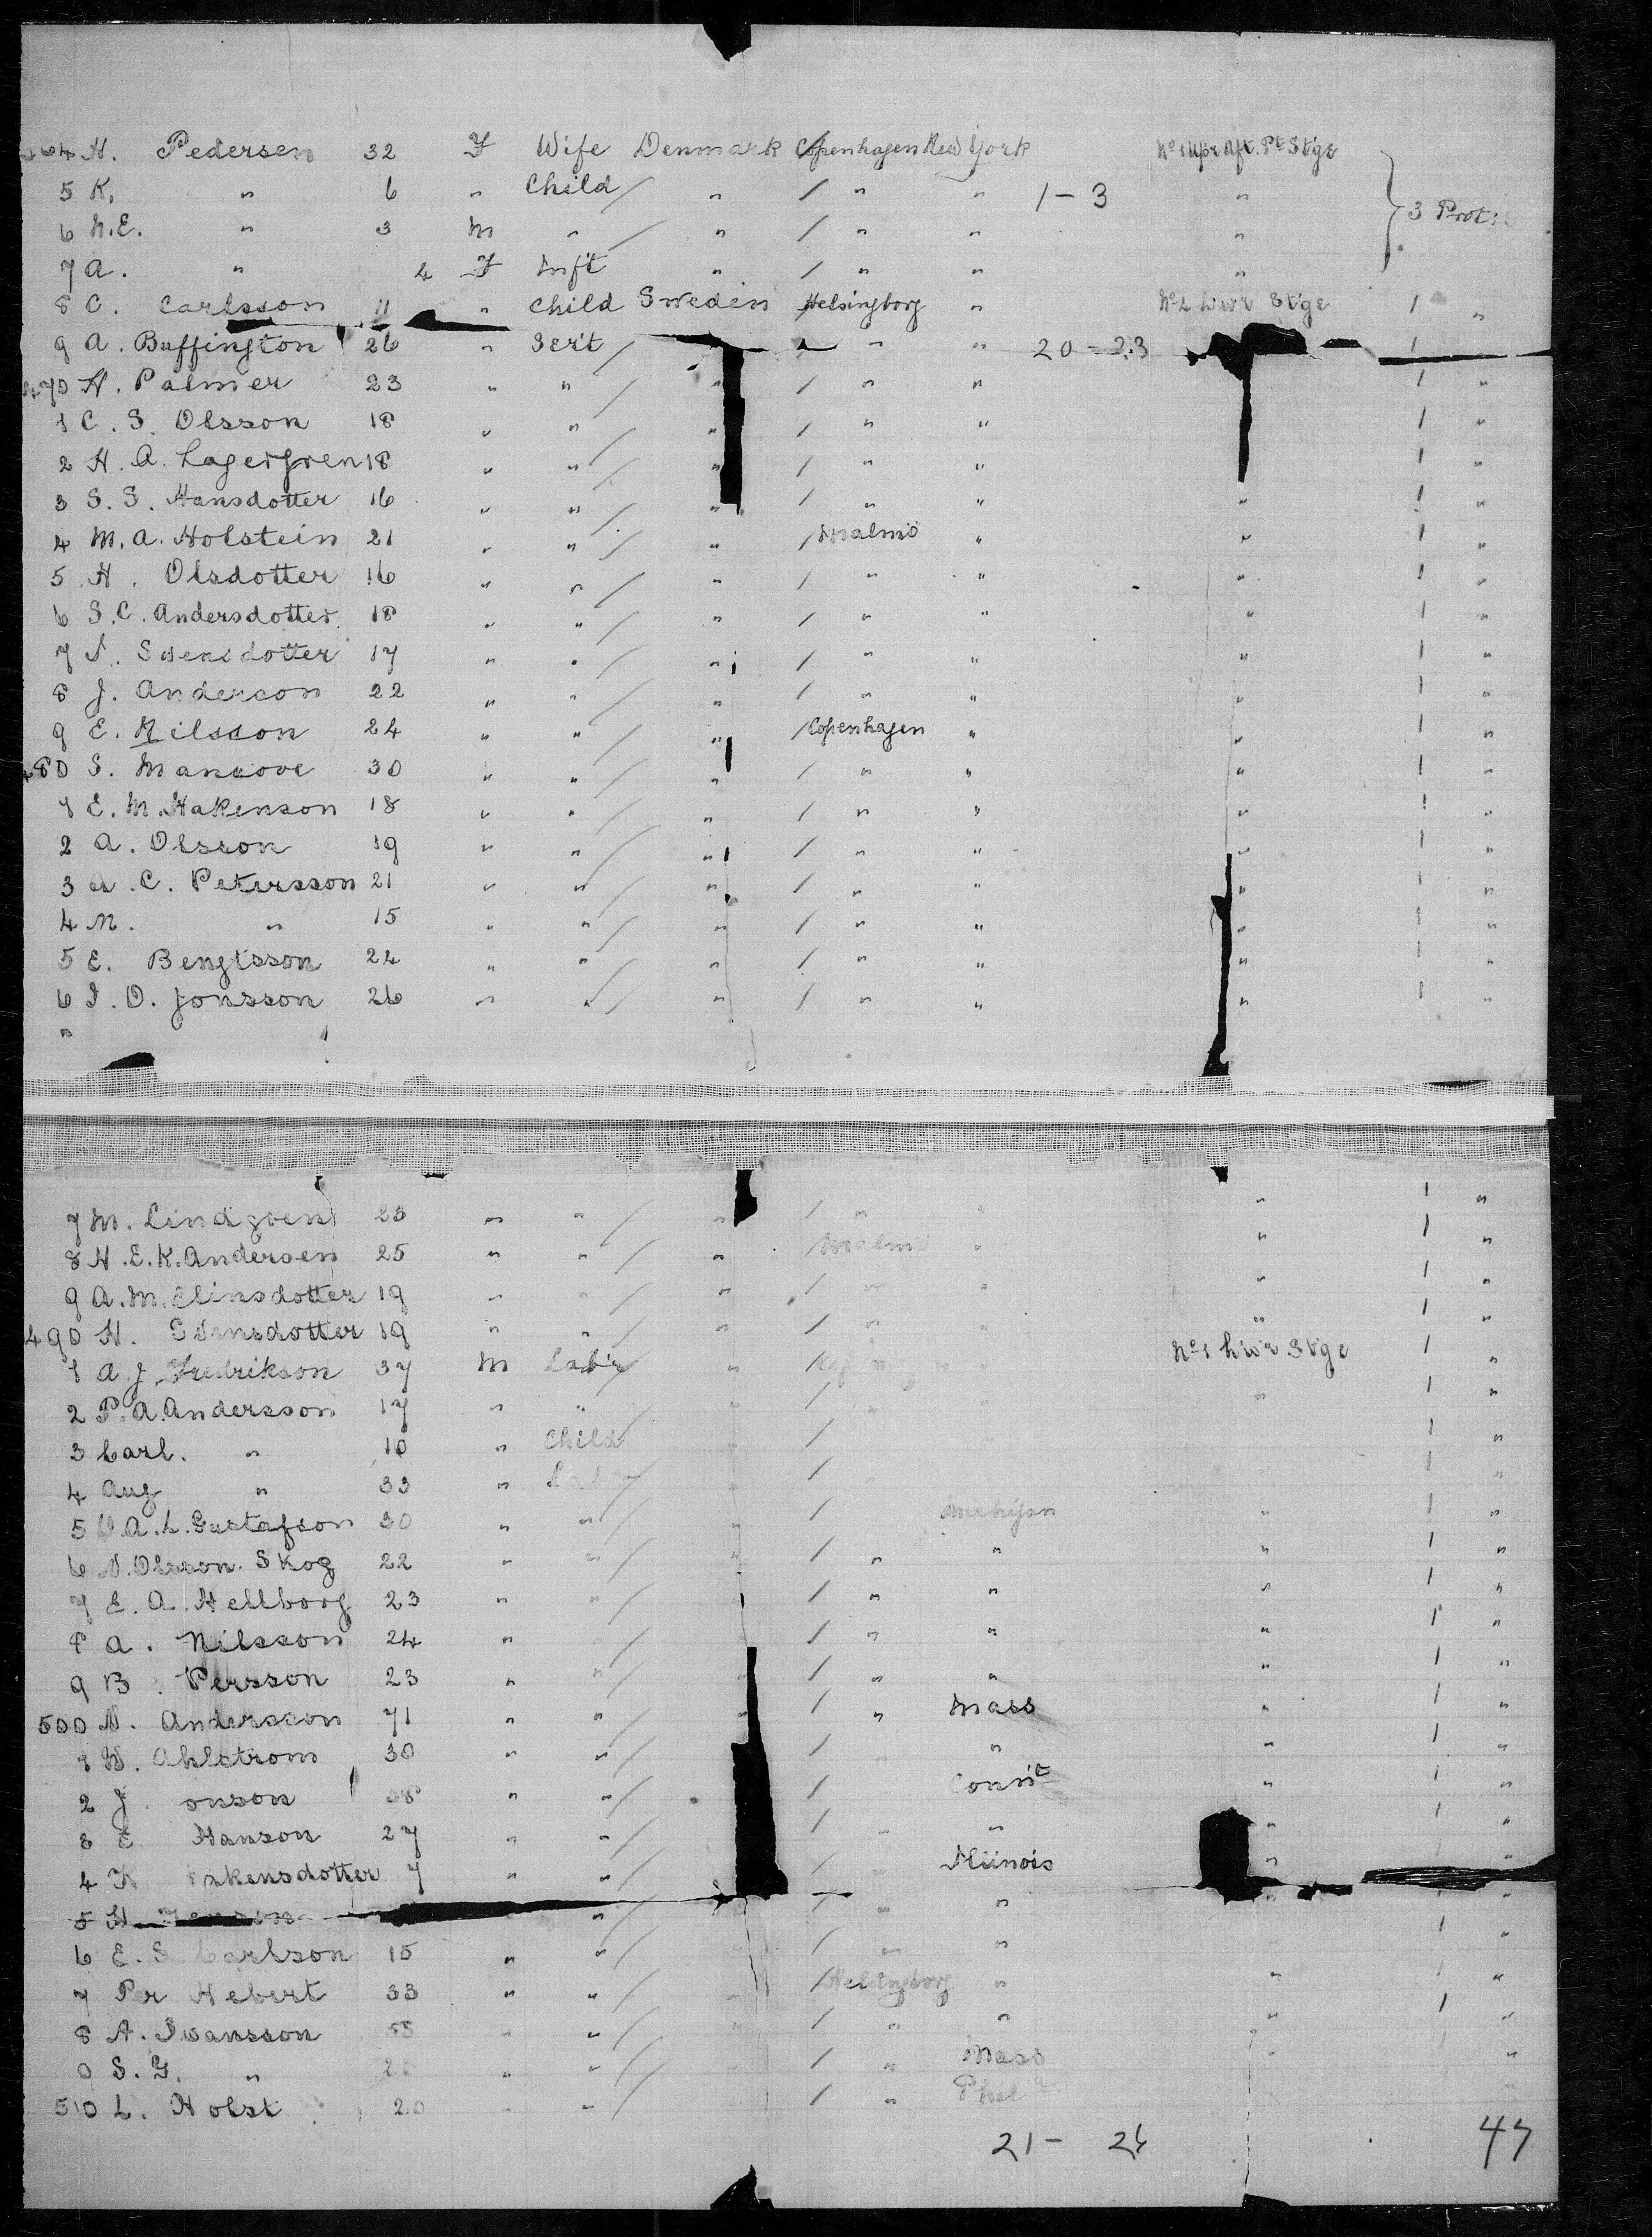 464 H. Pedersen 32 F Wife Denmark Copenhagen New York No 1 Upr Aft. Pt Stge
5 K. " 6 " Child " " " 1 - 3 "
6 N.E. " 3 M " " " " " } 3 Prot:
7 A. " 4 F Inft " " " "
8 C. Carlsson 11 " Child Sweden Helsingborg " No 2 Lwr Stge 1 "
9 A. Buffington 26 " Sert " " 20 - 23 1
470 H. Palmer 23 " " " " " 1 "
1 C. S. Olsson 18 " " " " " 1 "
2 H. A. Lagergren 18 " " " " " 1 "
3 S. S. Hansdotter 16 " " " " " " 1 "
4 M. A. Holstein 21 " " " Malmö " " 1 "
5 H. Olsdotter 16 " " " " " " 1 "
6 S. C. Andersdotter 18 " " " " " " 1 "
7 Svensdotter 17 " " " " " " 1 "
8 J. Anderson 22 " " " " " " 1 "
9 E. Nilsson 24 " " " Copenhagen " " 1 "
480 S. 30 " " " " " " 1 "
1 E. M. Hakenson 18 " " " " " " 1 "
2 A. Olsson 19 " " " " " " 1 "
3 A. C. Petersson 21 " " " " " " 1 "
4 M. " 15 " " " " " " 1 "
5 E. Bengtsson 24 " " " " " " 1 "
6 I. O. Jonsson 26 " " " " " " 1 "
"
7 M. Lindgren 23 " " " " " 1 "
8 H. E. K. Andersen 25 " " " Malmö " " 1 "
9 A. M. Elinsdotter 19 " " " " " " 1 "
490 H. Svensdotter 19 " " " " " " 1 "
1 A. J. Fredrikson 37 M Labr " " No 1 Lwr Stge 1 "
2 P. A. Andersson 17 " " " " " 1 "
3 Carl. " 10 " Child 1 "
4 Aug " 33 " Labr " 1 "
5 A. L. Gustafson 30 " " " Michigan " 1 "
6 N. Olsson Skog 22 " " " " " " 1 "
7 E. A. Hellborg 23 " " " " " 1 "
8 A. Nilsson 24 " " " " " 1 "
9 B. Persson 23 " " " " " 1 "
500 N. Andersson 71 " " " Mass " 1 "
1 Ahlstrom 30 " " " " 1 "
2 J onson " " Connt " 1 "
3 E Hanson 27 " " " " 1 "
4 K akensdotter 7 " " " Illinois " "
5 H. " " " " "
6 E. S Carlson 15 " " " " 1 "
7 Per Hebert 33 " " Helsingborg " " 1 "
8 A. Swansson " " " " " 1 "
9 S. G. " 20 " " " Mass " "
510 L. Holst 20 " " " Phila
21 - 26 47